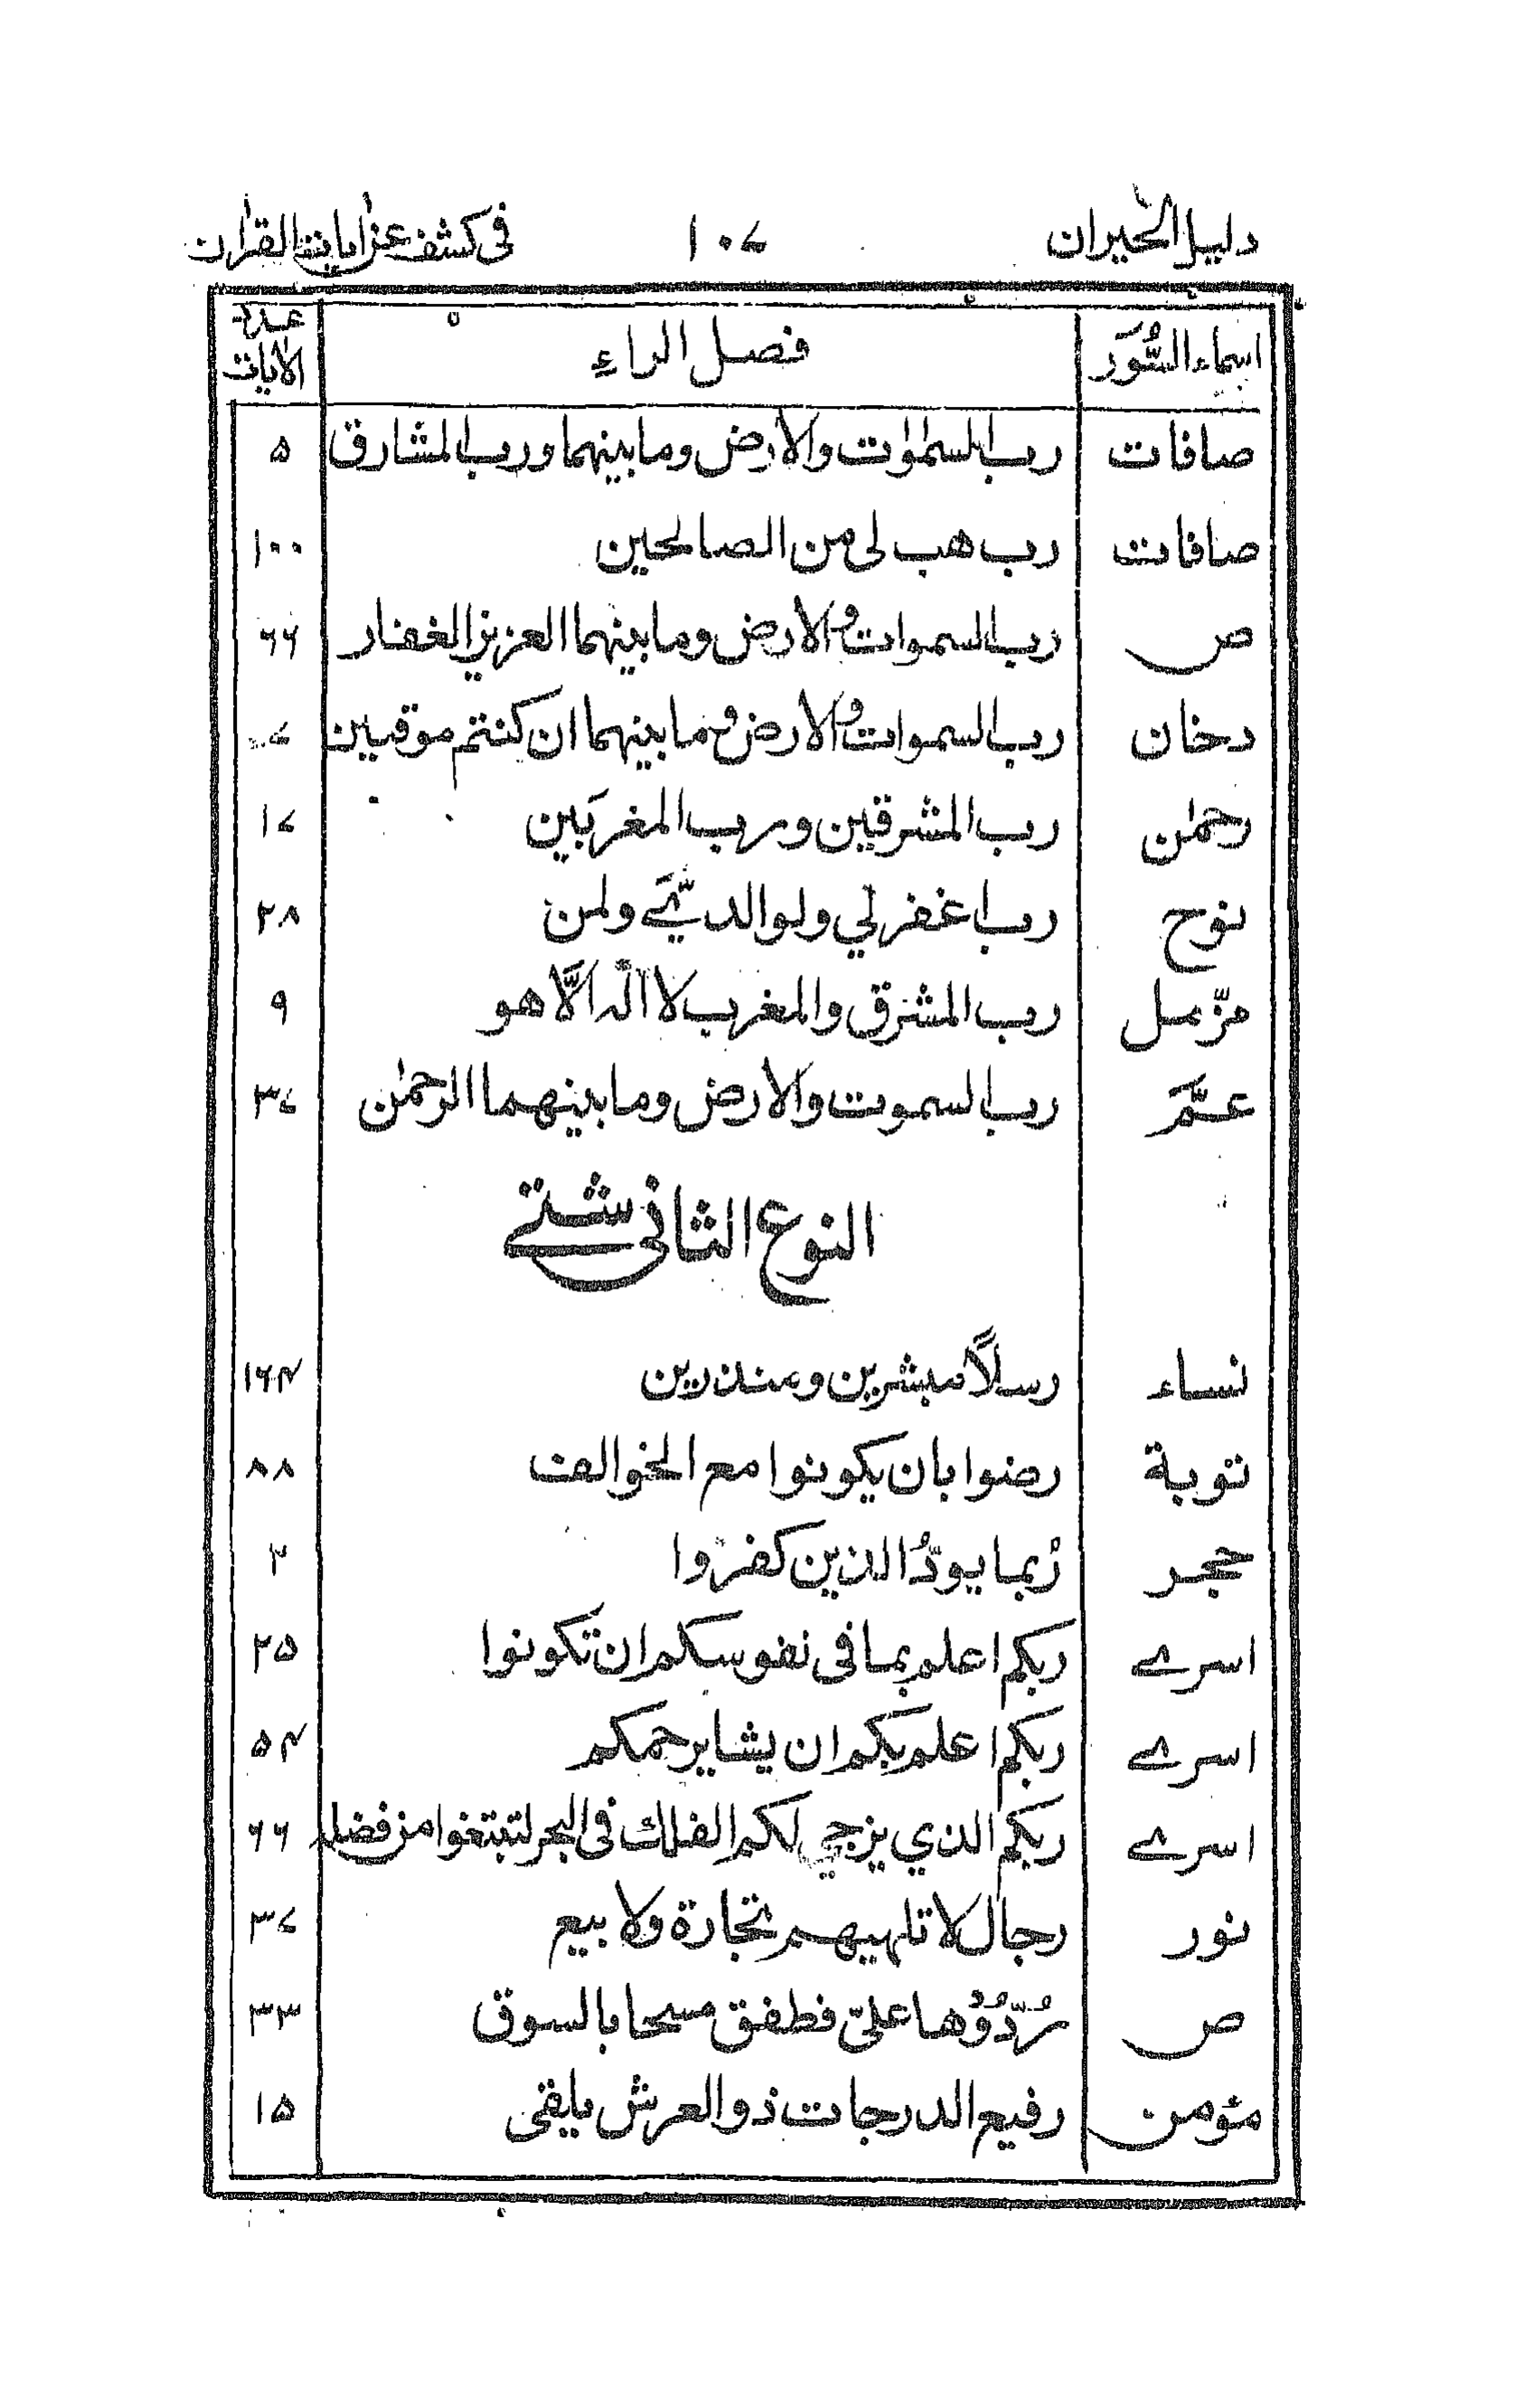 دليل الحيران ١٠٧ فى كشف عن ايات القران
اسماء السُّوَر فصل الراءِ عدد الاٰيات
صافات رب السمٰوٰت والارض وما بينهما ورب المشارق ۵
صافات رب هب لى من الصالحين ١٠٠
ص رب السموات والارض وما بينهما العزيز الغفار ۶۶
دخان رب السموات والارض وما بينهما ان كنتم موقنين ٧
رحمٰن رب المشرقين ورب المغربَين ١٧
نوح رب اغفر لي ولوالدیَّے ولمن ٢٨
مزّمل رب المشرق والمغرب لا الٰه الَّا هو ٩
عمَّ رب السموت والارض وما بينهما الرحمٰن ٣٧
النوع الثانى شتے
نساء رسلاً مبشرين ومنذرين ١۶۴
توبة رضوا بان يكونوا مع الخوالف ٨٨
حجر رُبما يودُّ الذين كفروا ٢
اسرے ربكم اعلم بما فى نفوسكم ان تكونوا ٢۵
اسرے ربكم اعلم بكم ان يشا يرحمكم ۵۴
اسرے ربكم الذي يزجي لكم الفلك فى البحر لتبتغوا من فضله ۶۶
نور رجال لا تلهيهم تجارة ولا بيع ٣٧
ص رُدُّوْها علىّ فطفق مسحا بالسوق ٣٣
مؤمن رفيع الدرجات ذو العرش يلقى ١۵